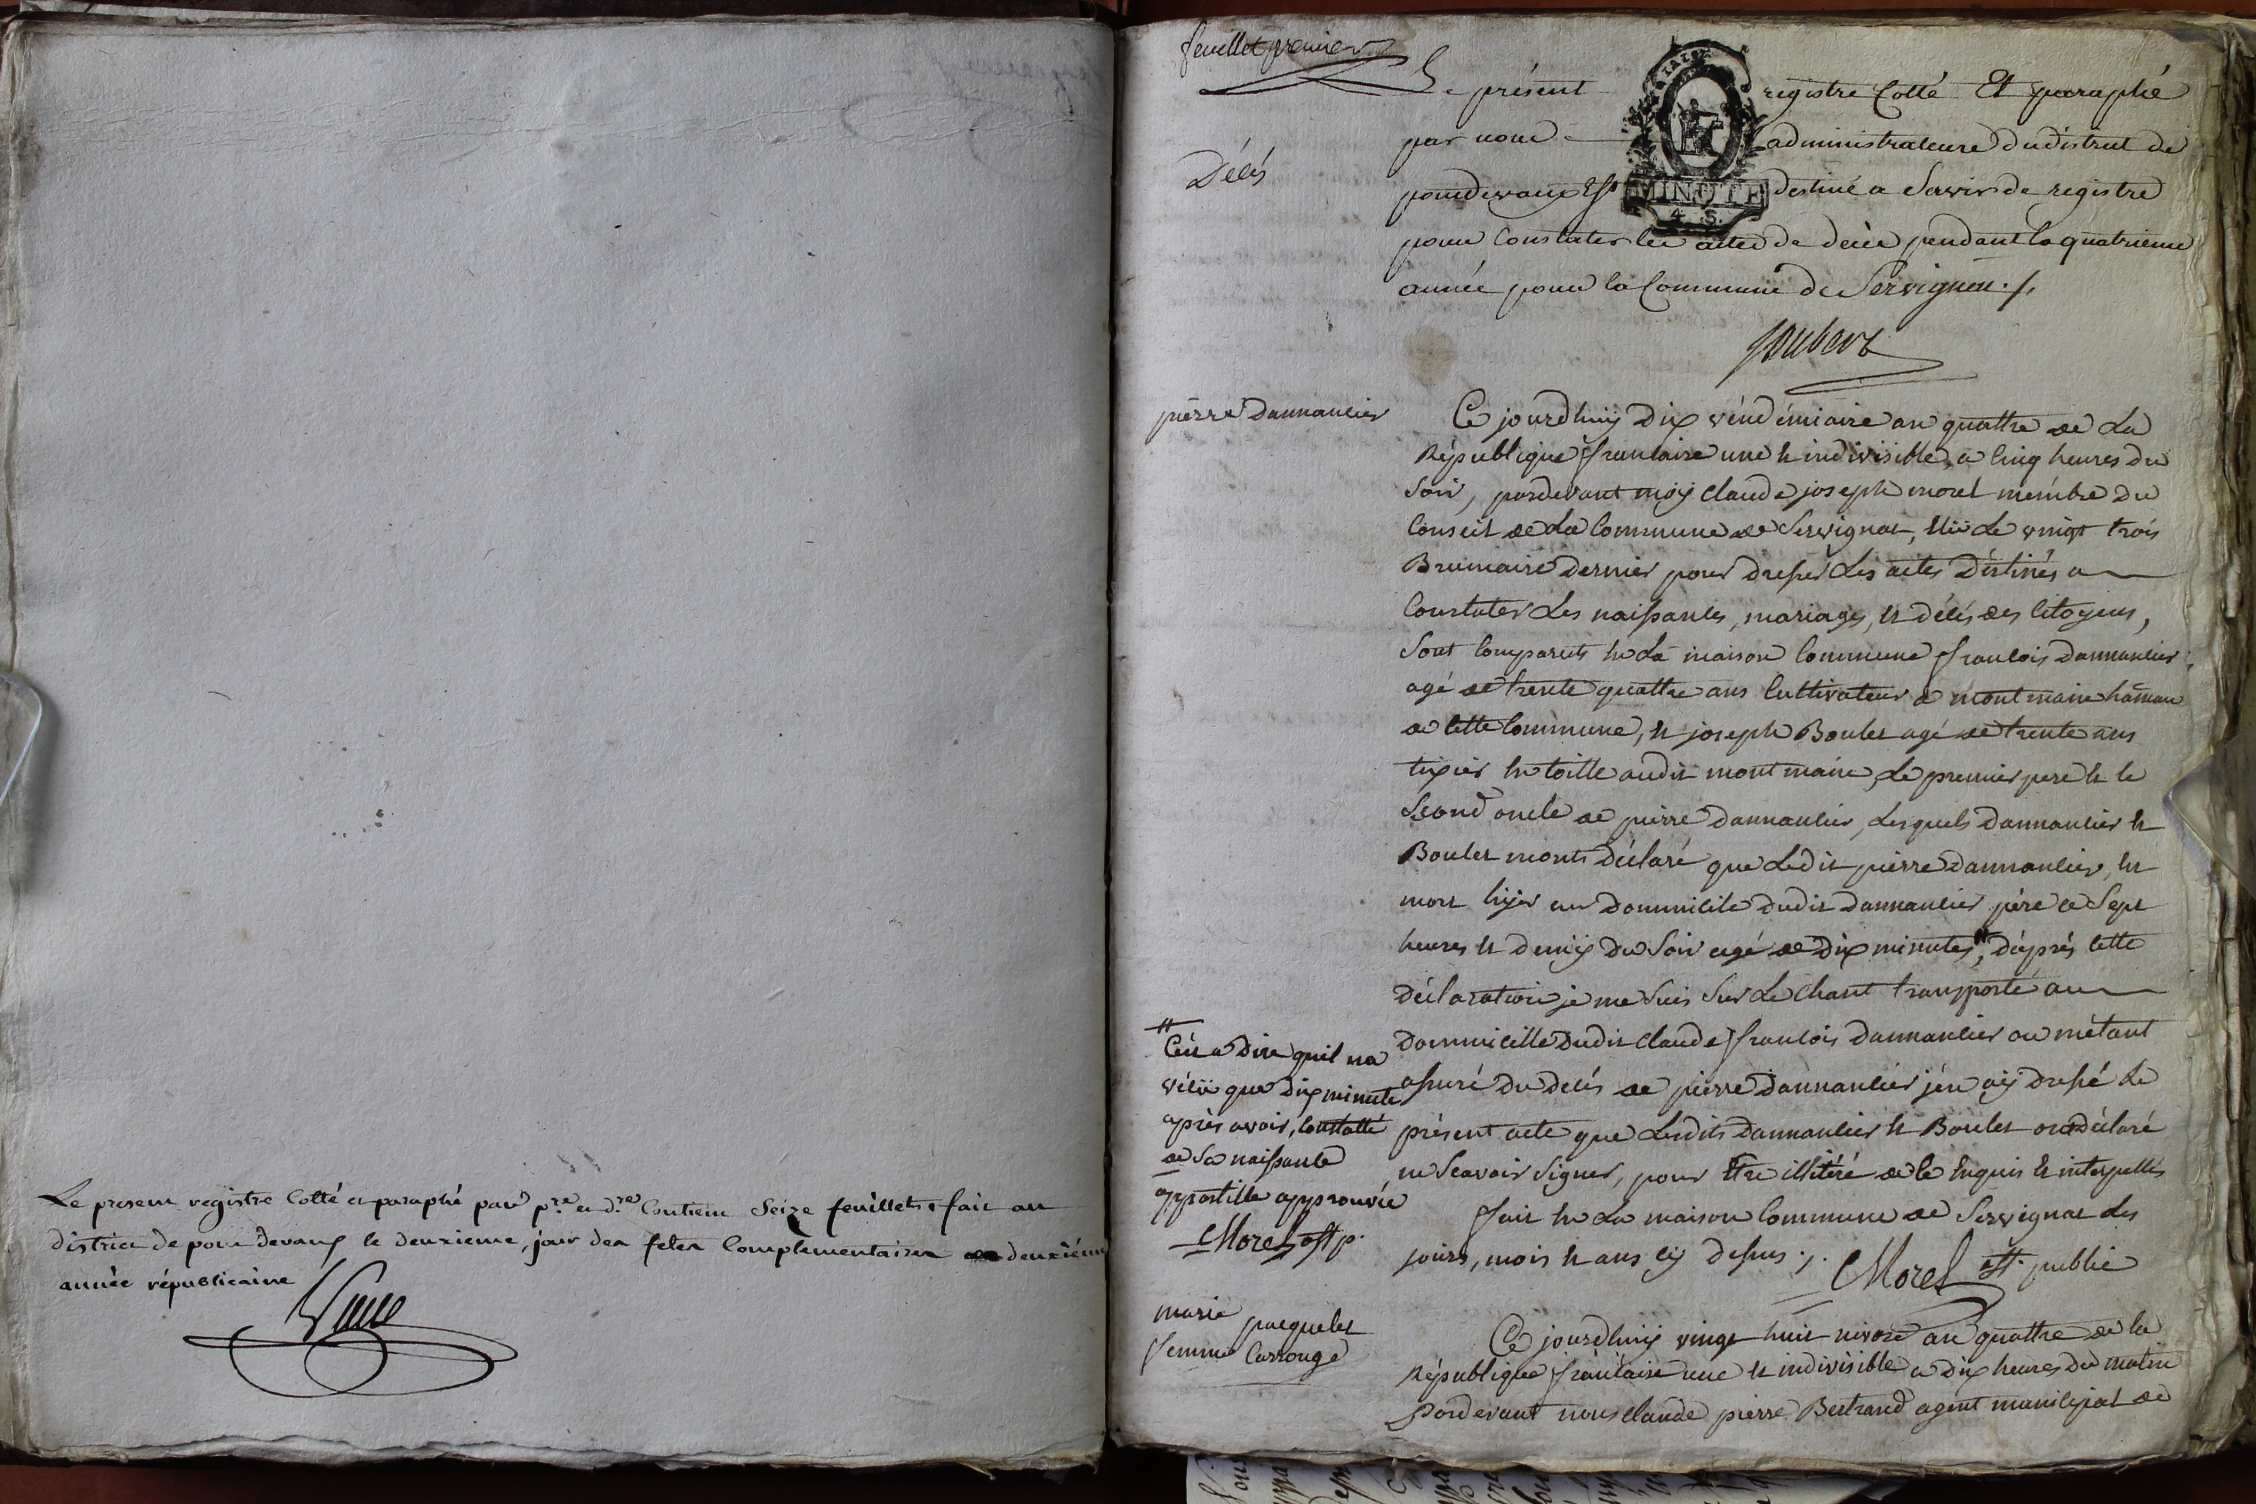 Le present registre Cotté et paraphé par p.re et d.re Contient Seize feuillets, fait au
district de pont devaux le deuxieme jour des fetes Complementaires deuxiéme
année républicaine
feuillet premier
Décés
Le présent registre Cotté Et paraphé
par nous administrateurs du district de
pondevaux Est destiné a Servir de registre
MINUTE
4. S.
pour Constater les actes de décès pendant la quatrieme
année pour la Commune de Servignat ./.
Joubert
pierre dannancier
Ce jourdhuij dix véndémiaire an quattre de La
République francaise une et indivisible, a cinq heures du
Soir, pardevant moij claude joseph morel membre du
Conseil de La Commune de Servignat, élu Le vingt trois
Brumaire dernier pour dresser Les actes déstinés a
Constater Les naissances, mariages, et décés des Citoyens,
Sont comparuts en La maison Commune francois dannancier
agé de trente quattre ans Cultivateur a montmain hameau
de cette Commune, et joseph Boulet agé de trente ans
tixier en toille audit montmain, Le premier pere et le
Second oncle de pierre dannancier, Lesquels dannancier et
Boulet monts déclaré que Ledit pierre dannancier, est
mort hijer au domicile dudit dannancier père a Sept
heures et demij du Soir agé de dix minutes, # d'après cette
déclaration je me Suis Sur Le chant transporté au
domicille dudit claude francois dannancier ou métant
assuré du décés de pierre dannancier jen aij dressé Le
présent acte que Lesdits dannancier et Boulet ont déclaré
ne Scavoir Signer, pour Etre illitéré de ce Enquis et interpellés
fait en La maison Commune de Servignat Les
jours, mois et ans cij dessus ./. CMorel off. public
#
Cést a dire quil na
vécu que dix minute
aprés avoir, constatté
de Sa naissance
appostille approuvée
CMorel off p.
marie pacquelet
femme Carrouge
Ce jourdhuij vingt huit nivose an quattre de la
République francaise une et indivisible a dix heures du matin
Pardevant nous claude pierre Bertrand agent municipal de